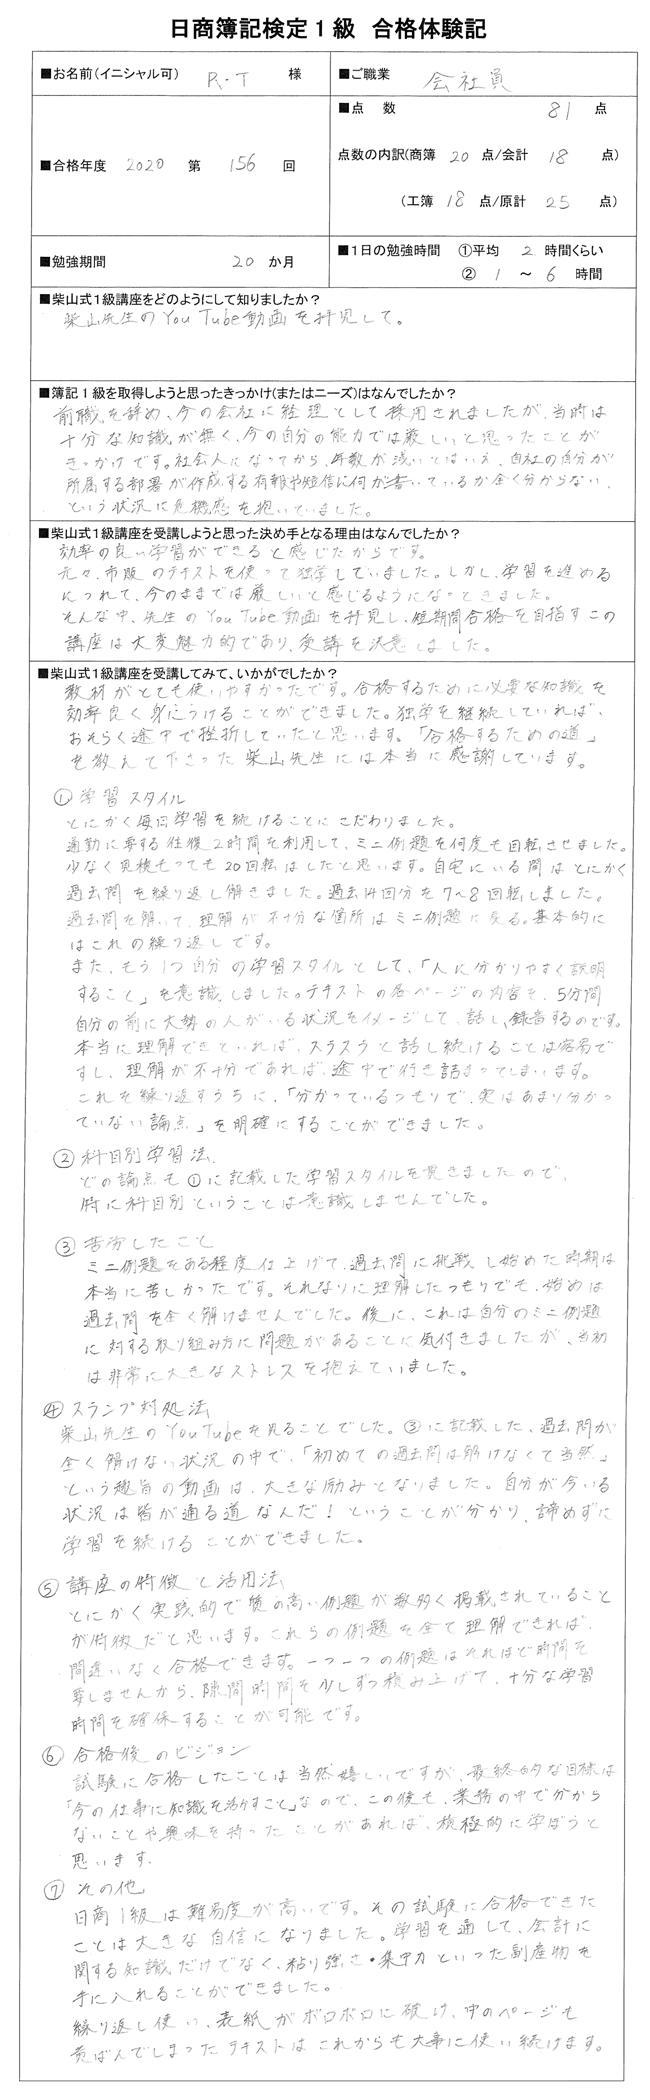 日商簿記検定1級 合格体験記
■お名前(イニシャル可) R.T 様
■ご職業 会社員
■合格年度 2020 第 156 回
■点 数 81 点
点数の内訳(商簿 20 点/会計 18 点)
(工簿 18 点/原計 25 点)
■勉強期間 20 か月
■1日の勉強時間 ①平均 2 時間くらい
② 1 ～ 6 時間
■柴山式1級講座をどのようにして知りましたか?
柴山先生のYouTube動画を拝見して。
■簿記1級を取得しようと思ったきっかけ(またはニーズ)はなんでしたか?
前職を辞め、今の会社に経理として採用されましたが、当時は
十分な知識が無く、今の自分の能力では厳しいと思ったことが
きっかけです。社会人になってから、年数が浅いとはいえ、自社の自分が
所属する部署が作成する有報や短信に何が書いているか全く分からない、
という状況に危機感を抱いていました。
■柴山式1級講座を受講しようと思った決め手となる理由はなんでしたか?
効率の良い学習ができると感じたからです。
元々、市販のテキストを使って独学していました。しかし、学習を進める
につれて、今のままでは厳しいと感じるようになってきました。
そんな中、先生のYouTube動画を拝見し、短期間合格を目指すこの
講座は大変魅力的であり、受講を決意しました。
■柴山式1級講座を受講してみて、いかがでしたか?
教材がとても使いやすかったです。合格するために必要な知識を
効率良く身につけることができました。独学を継続していれば、
おそらく途中で挫折していたと思います。「合格するための道」
を教えて下さった柴山先生には本当に感謝しています。
① 学習スタイル
とにかく毎日学習を続けることにこだわりました。
通勤に要する往復2時間を利用して、ミニ例題を何度も回転させました。
少なく見積もっても20回転はしたと思います。自宅にいる間はとにかく
過去問を繰り返し解きました。過去14回分を7～8回転しました。
過去問を解いて、理解が不十分な箇所はミニ例題に戻る。基本的に
はこれの繰り返しです。
また、もう1つ自分の学習スタイルとして、「人に分かりやすく説明
すること」を意識しました。テキストの各ページの内容を、5分間
自分の前に大勢の人がいる状況をイメージして、話し、録音するのです。
本当に理解できていれば、スラスラと話し続けることは容易で
すし、理解が不十分であれば、途中で行き詰まってしまいます。
これを繰り返すうちに、「分かっているつもりで、実はあまり分かっ
ていない論点」を明確にすることができました。
② 科目別学習法
どの論点も①に記載した学習スタイルを貫きましたので、
特に科目別ということは意識しませんでした。
③ 苦労したこと
ミニ例題をある程度仕上げて、過去問に挑戦し始めた時期は
本当に苦しかったです。それなりに理解したつもりでも、始めは
過去問を全く解けませんでした。後に、これは自分のミニ例題
に対する取り組み方に問題があることに気付きましたが、当初
は非常に大きなストレスを抱えていました。
④ スランプ対処法
柴山先生のYouTubeを見ることでした。③に記載した、過去問が
全く解けない状況の中で、「初めての過去問は解けなくて当然」
という趣旨の動画は、大きな励みとなりました。自分が今いる
状況は皆が通る道なんだ!ということが分かり、諦めずに
学習を続けることができました。
⑤ 講座の特徴と活用法
とにかく実践的で質の高い例題が数多く掲載されていること
が特徴だと思います。これらの例題を全て理解できれば、
間違いなく合格できます。一つ一つの例題はそれほど時間を
要しませんから、隙間時間を少しずつ積み上げて、十分な学習
時間を確保することが可能です。
⑥ 合格後のビジョン
試験に合格したことは当然嬉しいですが、最終的な目標は
「今の仕事に知識を活かすこと」なので、この後も、業務の中で分から
ないことや興味を持ったことがあれば、積極的に学ぼうと
思います。
⑦ その他
日商1級は難易度が高いです。その試験に合格できた
ことは大きな自信になりました。学習を通して、会計に
関する知識だけでなく、粘り強さ・集中力といった副産物を
手に入れることができました。
繰り返し使い、表紙がボロボロに破け、中のページも
黄ばんでしまったテキストはこれからも大事に使い続けます。